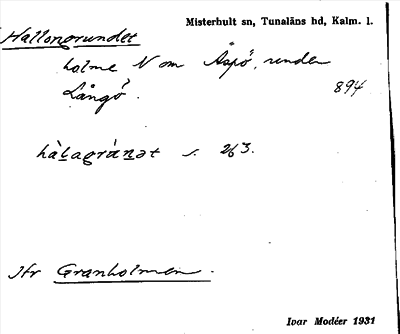 Misterhult sn, Tunaläns hd, Kalm. l.
Hallongrundet
holme N om Äspö, under
Långö.
894
hàlagrúnət s. 263.
Jfr Granholmen.
Ivar Modéer 1931